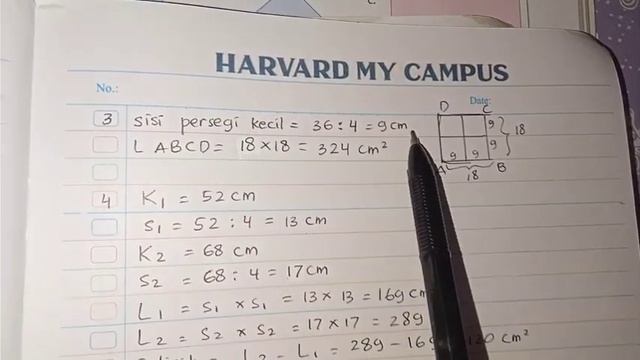 HARVARD MY CAMPUS
No.:
Date:
3 sisi persegi kecil = 36 : 4 = 9 cm
L ABCD = 18 × 18 = 324 cm²
D C
9
9
18
9 9
A B
18
4 K₁ = 52 cm
S₁ = 52 : 4 = 13 cm
K₂ = 68 cm
S₂ = 68 : 4 = 17 cm
L₁ = S₁ × S₁ = 13 × 13 = 169 cm
L₂ = S₂ × S₂ = 17 × 17 = 289
L₂ - L₁ = 289 - 169 120 cm²